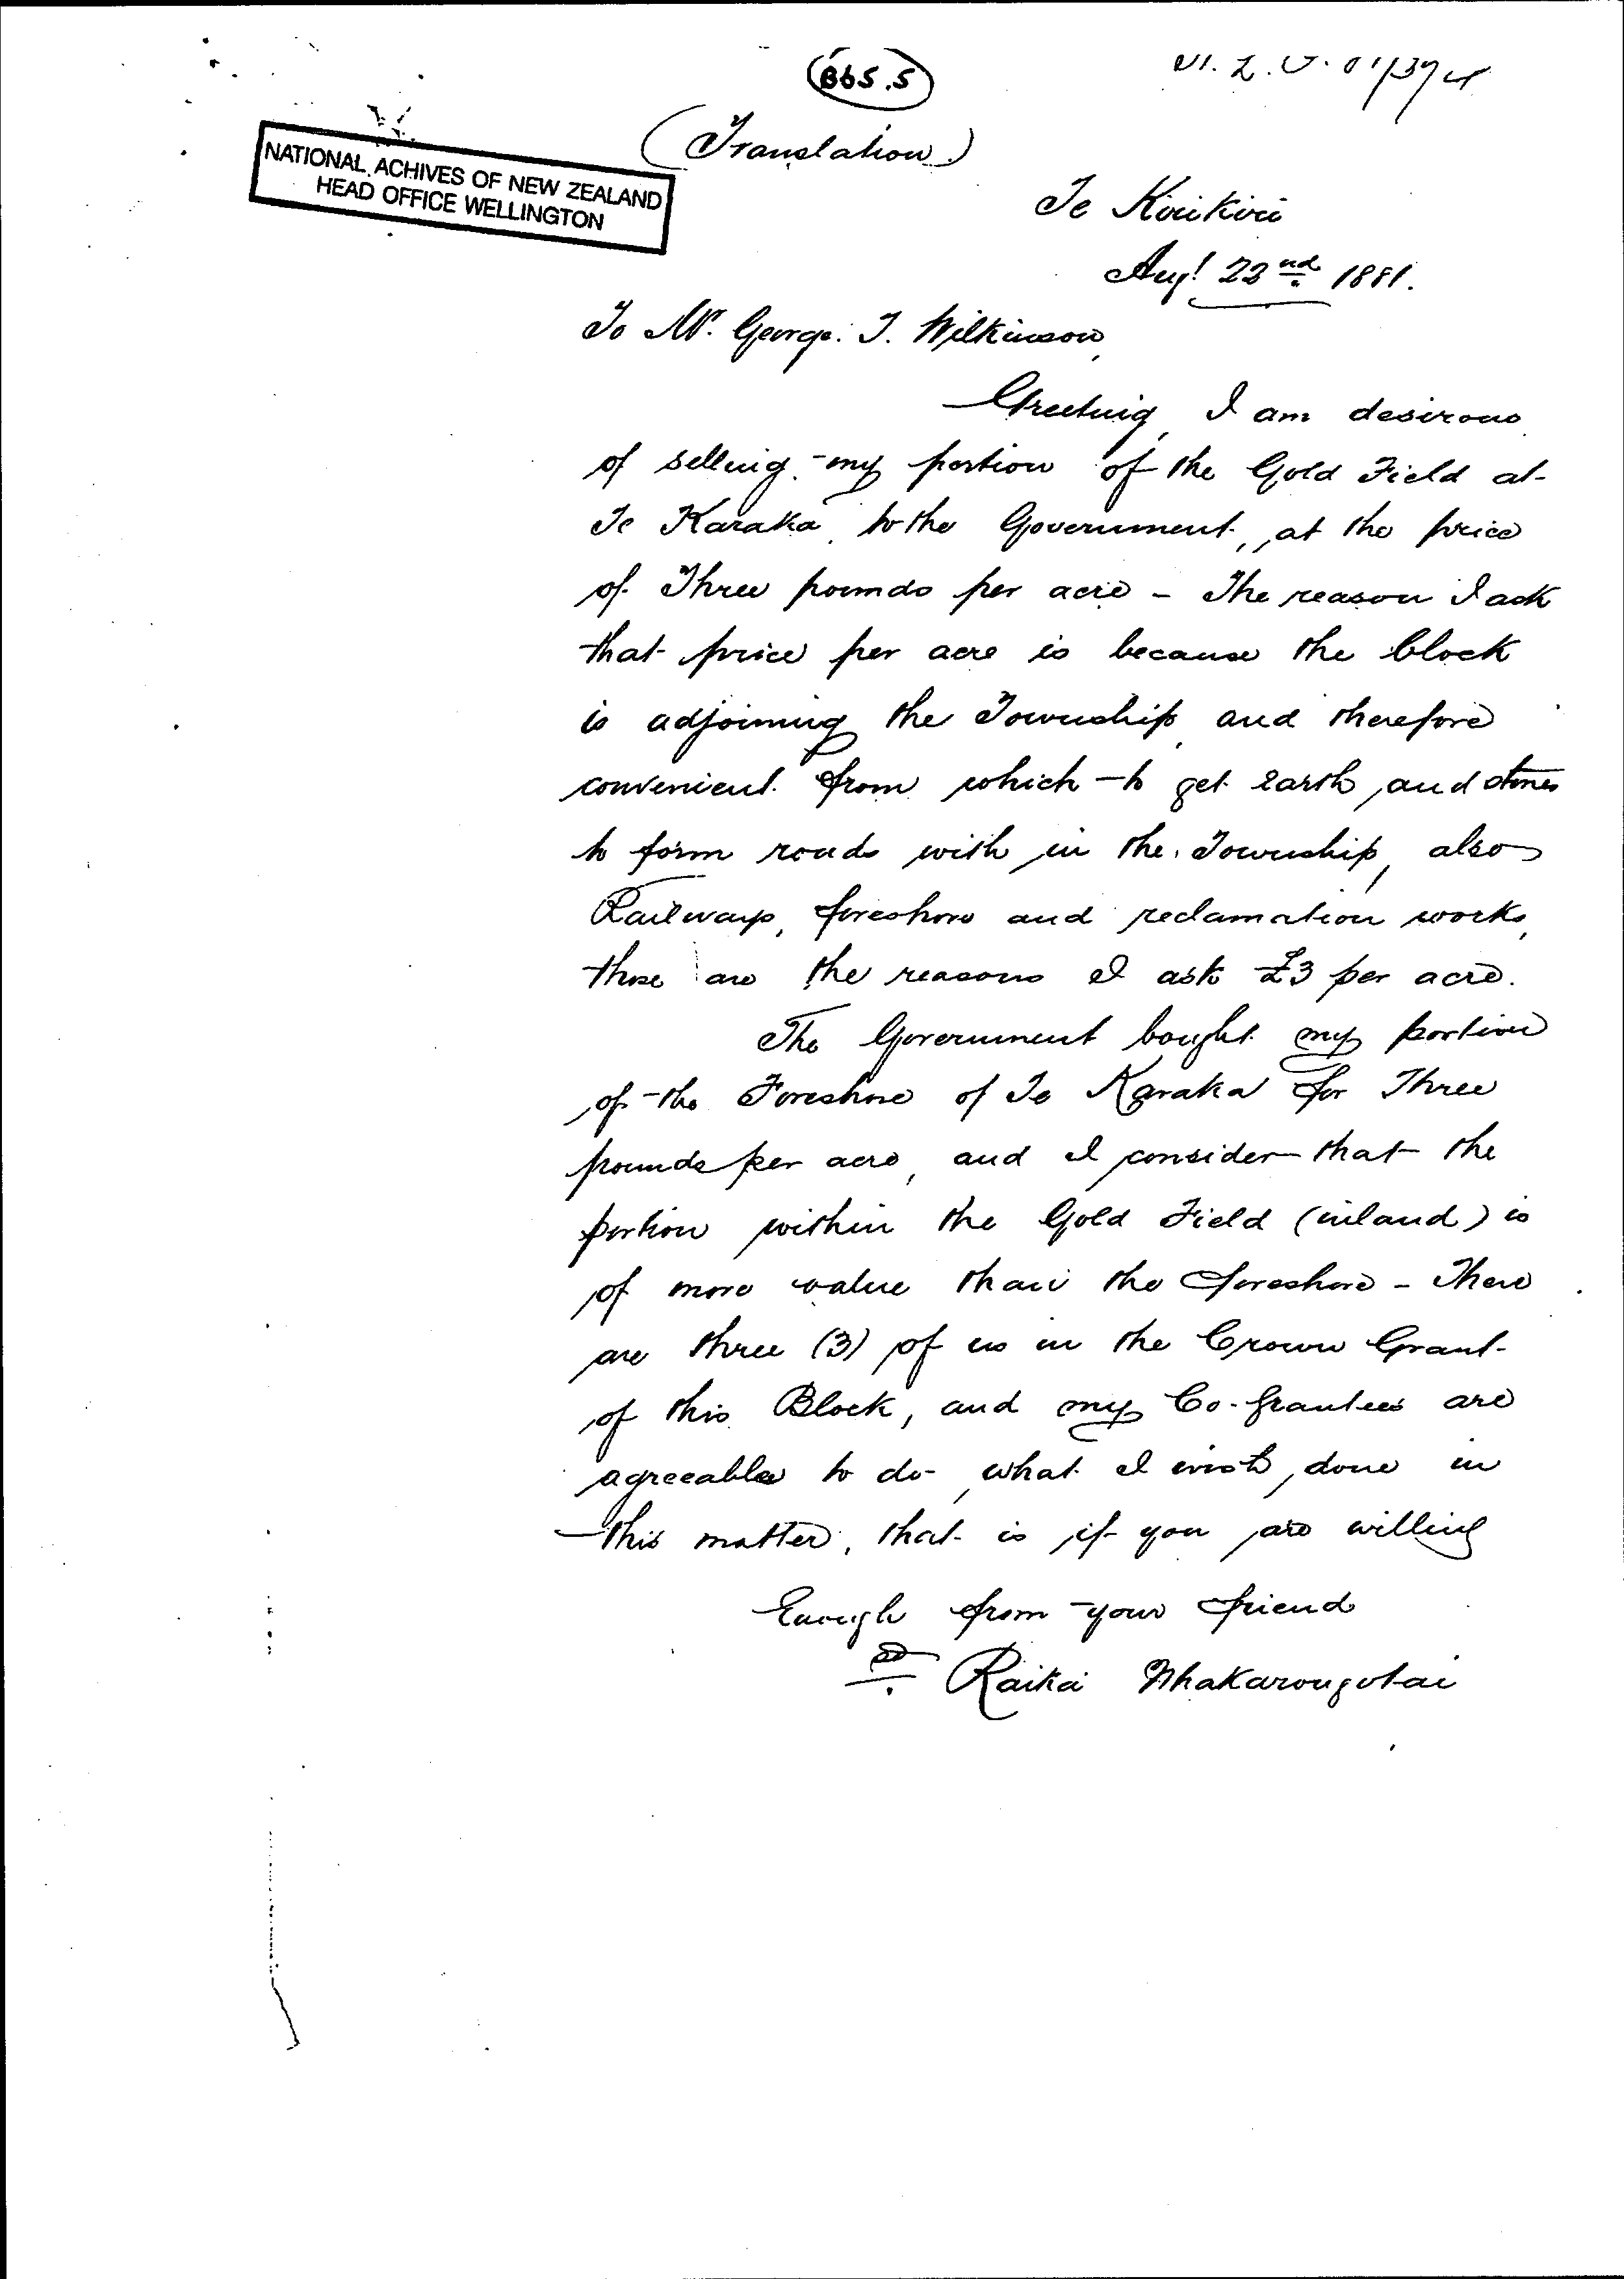 B65.5
N. L. P. 81/374
(Translation)
NATIONAL ACHIVES OF NEW ZEALAND
HEAD OFFICE WELLINGTON
Te Kirikiri
Augt 22nd 1881.
To Mr. George. T. Wilkinson,
Greeting, I am desirous
of selling my portion of the Gold Field at
Te Karaka, to the Government, at the price
of Three pounds per acre - The reason I ask
that price per acre is because the block
is adjoining the Township, and therefore
convenient from which to get earth, and stones
to form roads with in the Township, also
Railways, foreshore and reclamation works,
those are the reasons I ask £3 per acre.
The Government bought my portion
of the Foreshore of Te Karaka for Three
pounds per acre, and I consider that the
portion within the Gold Field (inland) is
of more value than the foreshore - There
are three (3) of us in the Crown Grant
of this Block, and my Co-grantees are
agreeable to do, what I wish, done in
this matter, that is if you are willing
Enough from your friend
sd. Raika Whakarongotai